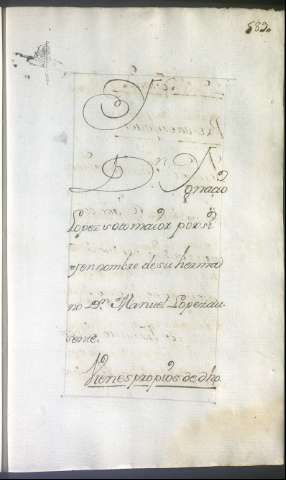 582.
D. Ignacio
Lopez sotomaior por si
y en nombre de su herma
no Dn. Manuel Lopez au
sente.
Vienes propios de dho.